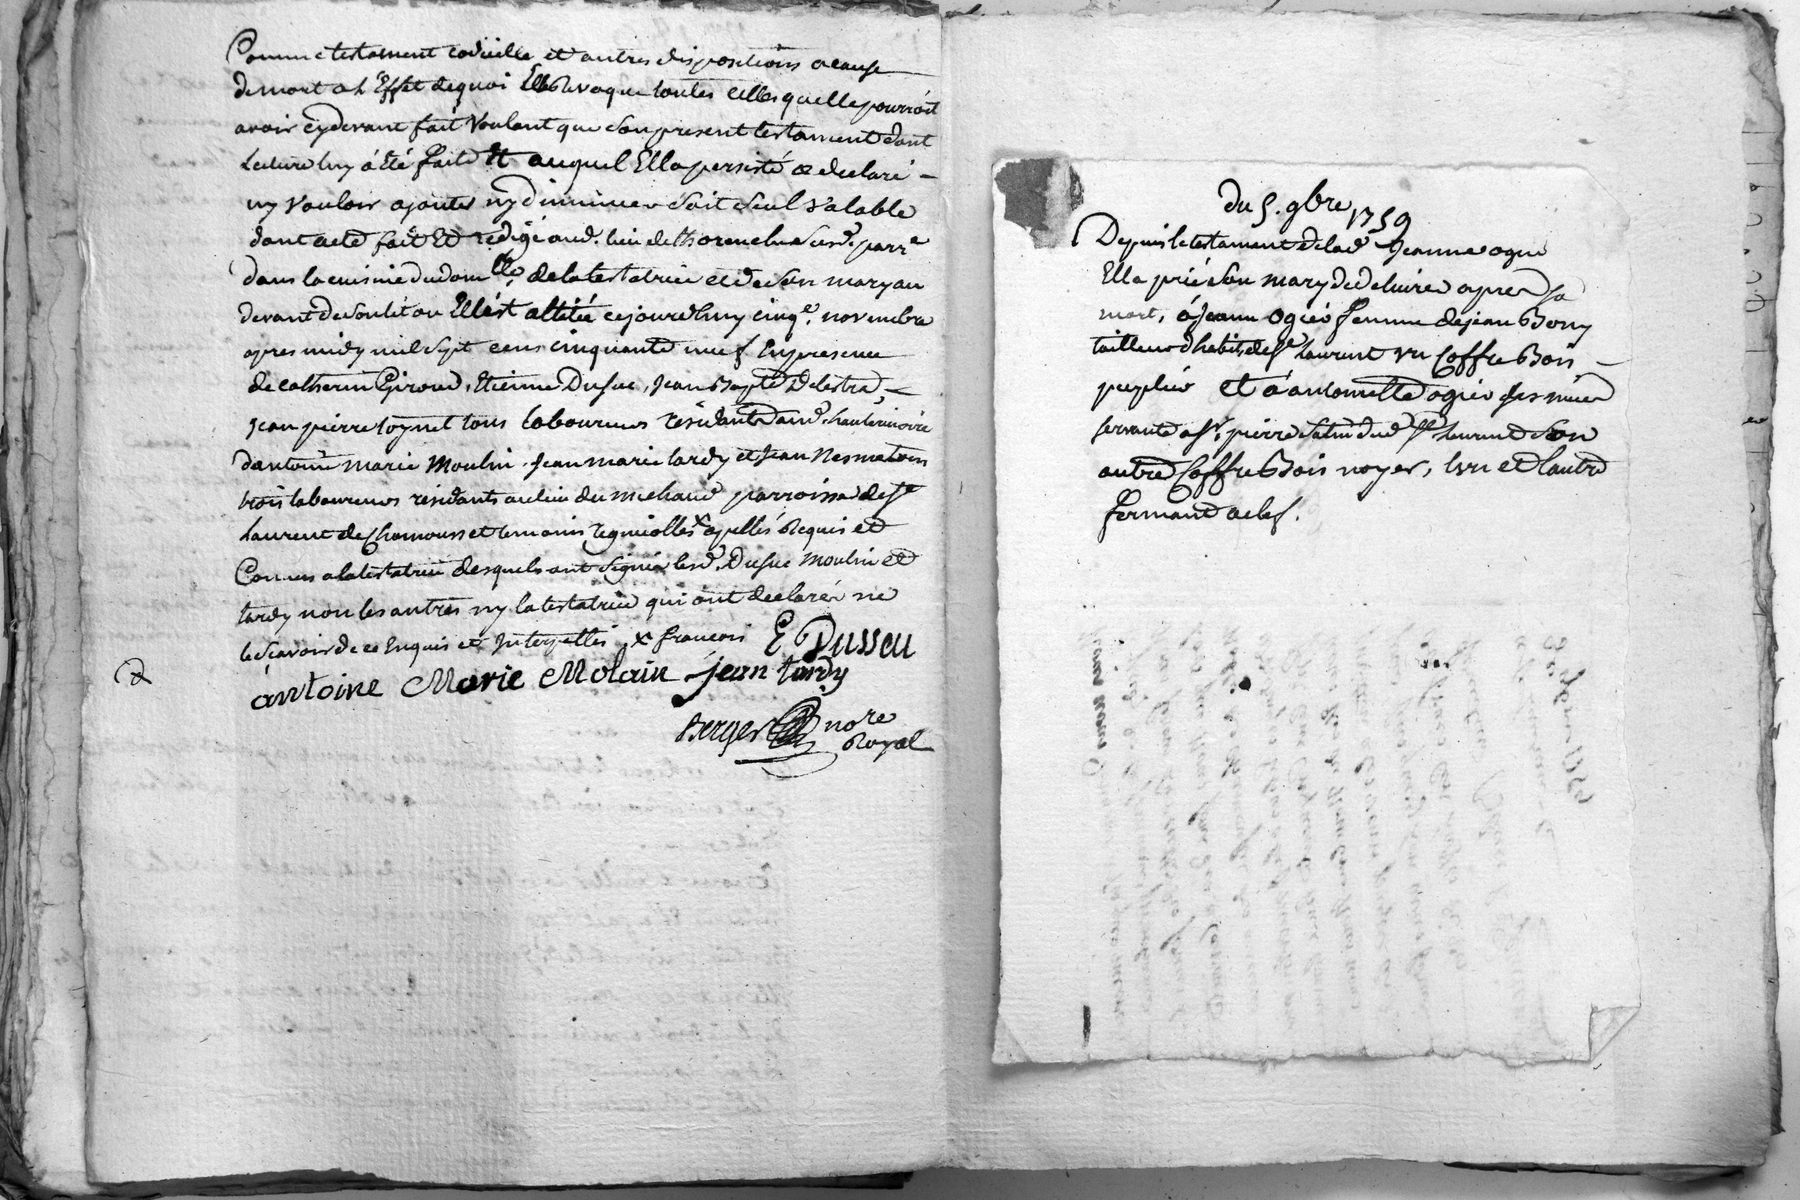 Comme testament codicille et autres dispositions a cause
de mort a l'Effet de quoi Elle Revoque toutes celles quelle pourroit
avoir cydevant fait Voulant que son present testament dont
Lecture luy á été faite Et auquel Ella persisté a declaré
ny vouloir ajouter ny diminuer soit seul valable
dont acte fait Et redigé aud. lieu de susd. parre
dans la cuisine du domlle. de la testatrice et de son mary au
devant de son lit ou Elle est alitée cejourdhuy cinqe. novembre
apres midy mil sept cens cinquante neuf En presence
de catherin Giroud, Etienne Dusuc, Jean Bapte Delestra,
Jean pierre toynet tous laboureurs residants aud. hauterivoire
d'antoine marie Moulin. Jean marie tardy et Jean
trois laboureurs residants au lieu du michaud parroisse de St
Laurent de Chamousset temoins x apellés Requis et
Connus a la testatrice desquels ont signé lesd. Dusuc Moulin et
tardy non les autres ny la testatrice qui ont declarér ne
le sçavoir de ce Enquis et Interpellés x francois E Dusseu
antoine Marie Molain jean tardy
Berger nore
Royal
du 5. 9bre 1759
Depuis le testament de lad. Jeanne ogier
Ella prié son mary de delivrer apres sa
mort, á Jeanne Ogier femme de jean Bony
tailleur d'habits de St laurent vn Coffre Bois
peuplier et á antoinette ogier ses niéces
servante a Sr. pierre dud. St laurent son
autre Coffre Bois noyer, lvn et lautre
fermant a clef.